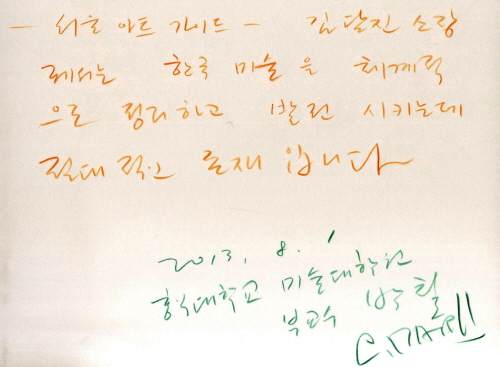 - 서울 아트 가이드 - 김달진 소장
께서는 한국 미술을 체계적
으로 정리하고 발전 시키는데
절대적인 존재 입니다
2013. 8. 1
홍익대학교 미술대학원
부교수 박철